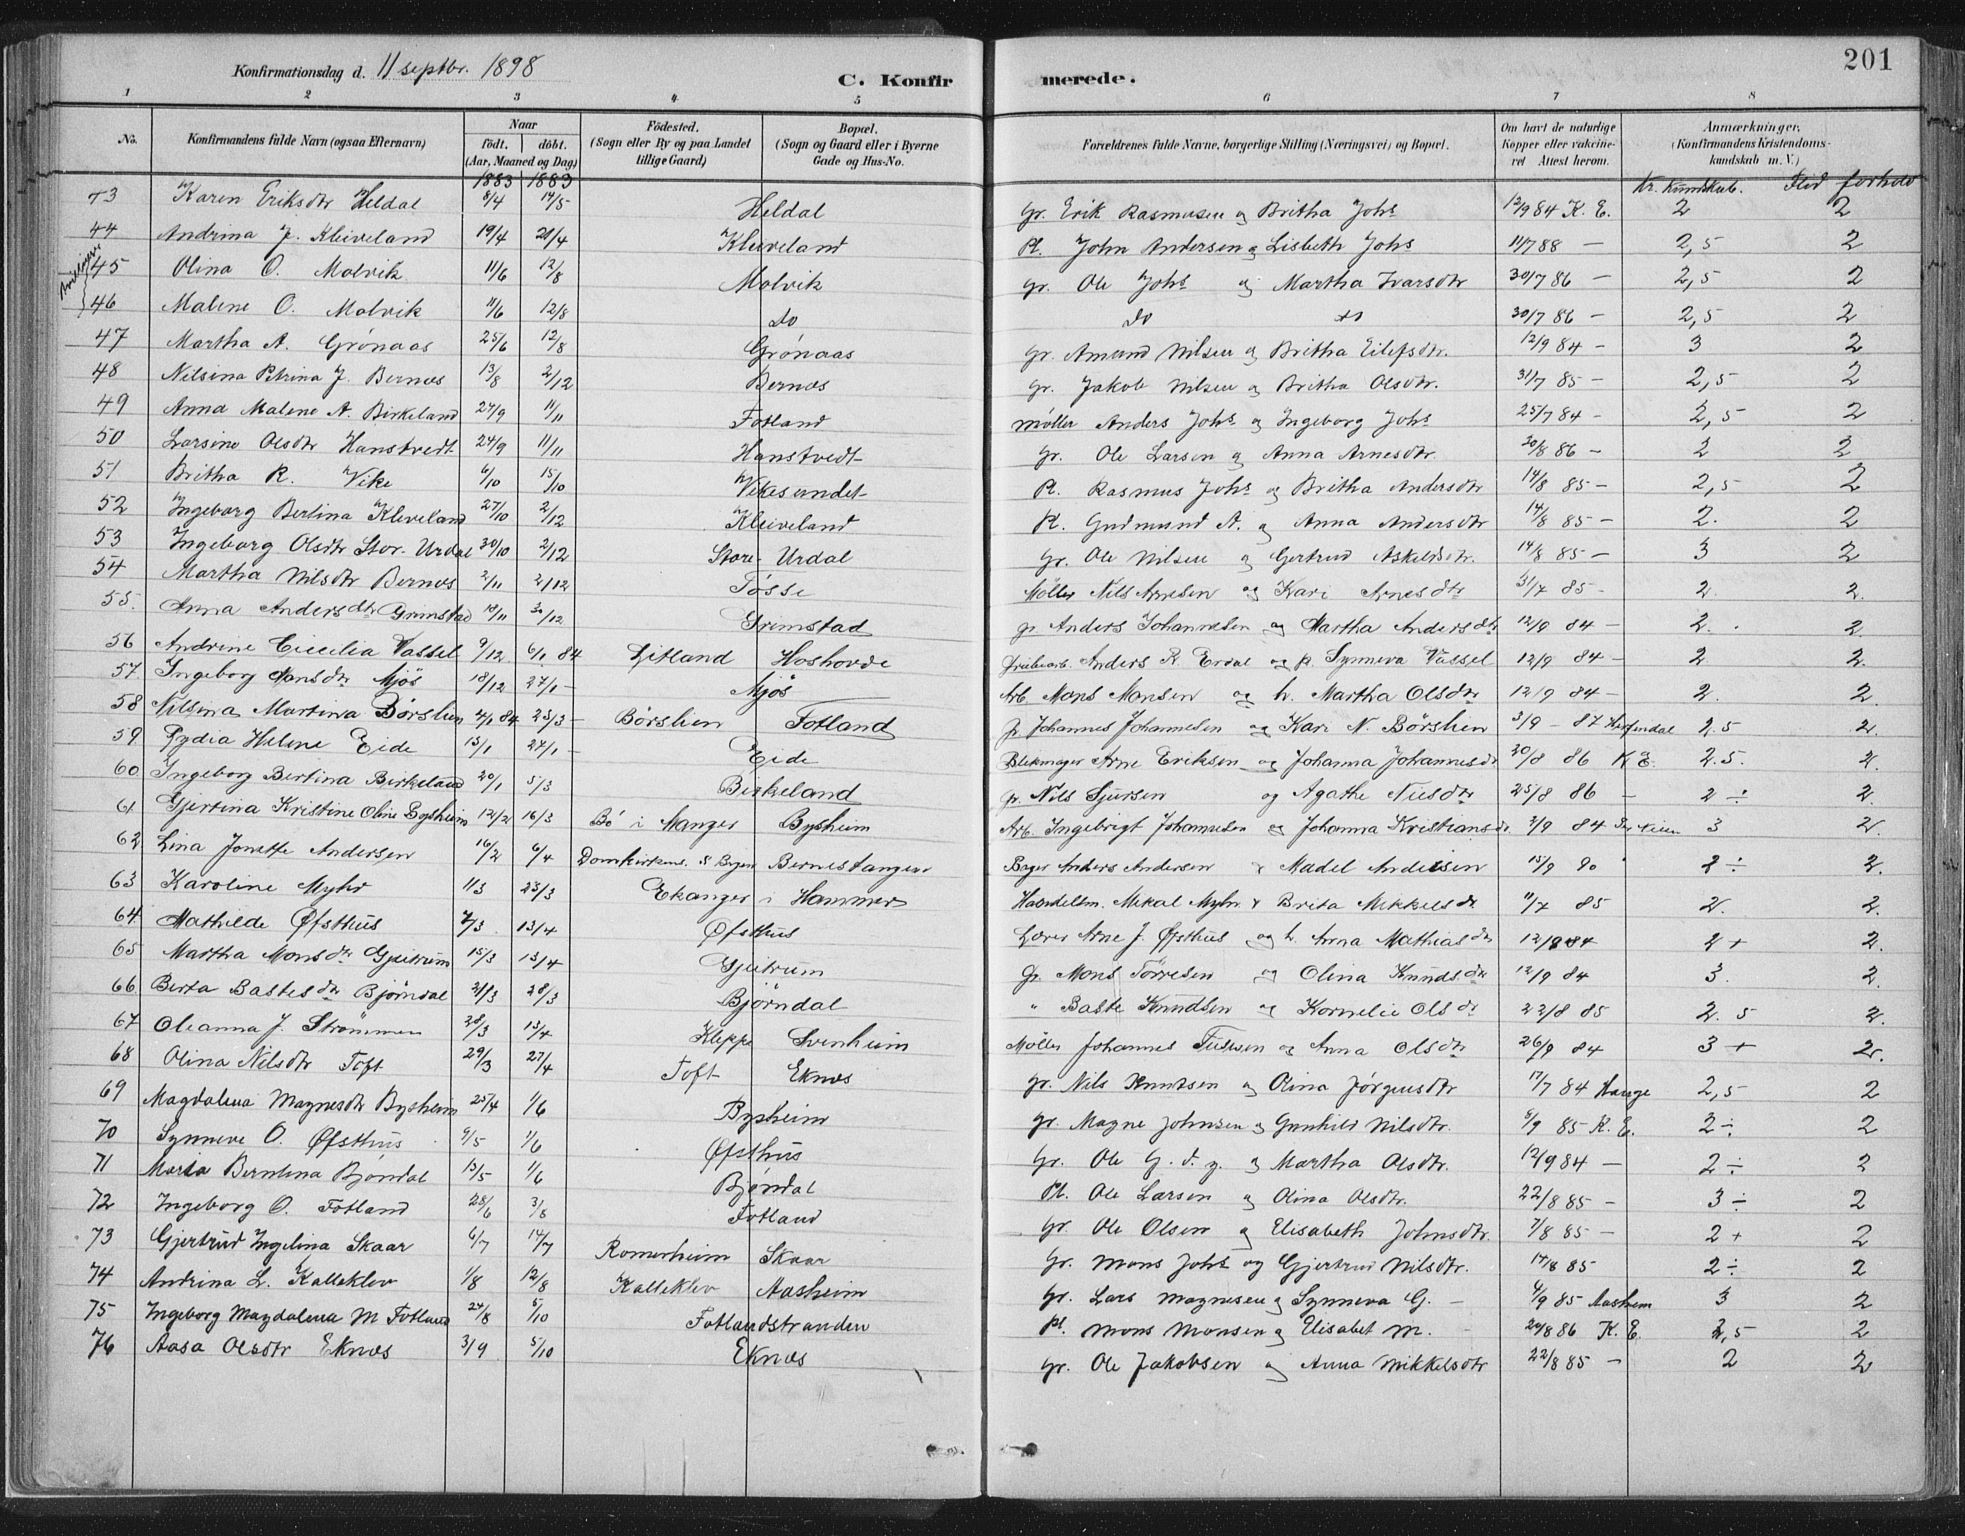 Konfirmationsdag d. 11 septbr. 1898
C. Konfirmerede.
201
1 2 3 4 5 6 7 8
No. Konfirmandens fulde Navn (ogsaa Efternavn) Naar født. døbt. (Aar, Maaned og Dag) Födested. (Sogn eller By og paa Landet tillige Gaard) Bopæl. (Sogn og Gaard eller i Byerne Gade og Hus-No. Forældrenes fulde Navne, borgerlige Stilling (Næringsvei) og Bopæl. Om havt de naturlige Kopper eller vakcineret Attest herom. Anmærkninger. (Konfirmandens Kristendomskundskab m. V.)
1883 1883 Kr. Kundskab. Flid forhold
43 Karen Eriksdtr Heldal 8/4 14/5 Heldal Gr. Erik Rasmusen og Britha Johs 12/9 84 K. E. 2 2
44 Andrina J. Kleiveland 19/4 21/4 Kleiveland Pl. John Andersen og Lisbeth Johs 11/7 88 — 2,5 2
45 Olina O. Molvik 11/6 12/8 Molvik Gr. Ole Johs og Martha Ivarsdtr 30/7 86 — 2,5 2
46 Malene O. Molvik 11/6 12/8 do do do 30/7 86 — 2,5 2
47 Martha A. Grønaas 25/6 12/8 Grønaas Gr. Amund Nilsen og Britha Eilefsdtr. 12/9 84 — 3 2
48 Nilsina Petrina J. Bernes 13/8 2/12 Bernes Gr. Jakob Nilsen og Britha Olsdtr. 31/7 85 — 2,5 2
49 Anna Malene A. Birkeland 27/9 11/11 Fotland møller Anders Johs og Ingeborg Johs 25/7 84 — 2,5 2
50 Larsine Olsdtr Hanstvedt 24/9 11/11 Hanstvedt Gr. Ole Larsen og Anna Arnesdtr. 20/8 86 — 2 2
51 Britha R. Vike 6/10 15/10 Vikesundet Pl. Rasmus Johs og Britha Andersdtr 14/8 85 — 2,5 2
52 Ingeborg Bertina Kleveland 27/10 2/12 Kleiveland Pl. Gudmund A. og Anna Andersdtr 14/8 85 — 2. 2
53 Ingeborg Olsdtr Stor-Urdal 30/10 2/12 Store-Urdal Gr. Ole Nilsen og Gertrud Askeldsdtr. 14/8 85 — 3 2
54 Martha Nilsdtr Bernes 2/11 2/12 Tøsse Møller Nils Arnesen og Kari Arnesdtr 31/7 85 — 2. 2.
55. Anna Andersdtr Grimstad 10/11 30/12 Grimstad gr Anders Johannesen og Martha Andersdtr 12/9 84 — 2. 2.
56 Andrine Cecilia Vassel 9/12 6/1 84 Litland Hoshovde Anders R. Erdal og p. Synneva Vassel 12/9 84 — 2 2.
57 Ingeborg Mansdtr Mjøs 18/12 27/1 — Mjøs Arb. Mons Monsen og h. Martha Olsdtr 12/9 84 — 2. 2.
58 Nilsina Martina Børslien 2/1 84 23/3 — Børslien Fotland gr Johannes Johannesen og Kari N. Børslien 3/9 — 87 2.5 2.
59 Lydia Helene Eide 13/1 27/1 — Eide Blikmager Arne Eriksen og Johanna Johannesdtr 20/8 86 K E. 2.5. 2.
60 Ingeborg Bertina Birkeland 20/1 5/3 Birkeland gr. Nils Sjursen og Agathe Nilsdtr 25/8 86 — 2 ÷ 2.
61 Gjertina Kristine Oline Bysheim 12/2 16/3 Bö i Manger Bysheim Arb. Ingebrigt Johannesen og Johanna Kristiansdtr. 3/9 84 3 2.
62 Lina Jonette Andersen 16/2 6/4 Domkirkens S Bergen Bernestangen Bager Anders Andersen & Madel Andersen 15/9 90 2 ÷ 2.
63 Karoline Myhr 1/3 23/3 Ekanger i Hammer Haandelsm. Mikal Myhr & Brita Mikkelsdtr. 11/7 85 2. 2.
64 Mathilde Øfsthus 7/3. 13/4 Øfsthus Lærer Arne J. Øfsthus og h. Anna Mathiasdtr 12/9 84 2 + 2.
65 Martha Monsdtr Gjeitrum 15/3 13/4 Gjeitrum Gr. Mons Tørresen og Olina Knudsdtr 12/9 84 3. 2.
66 Berta Bastesdtr Bjørndal 21/3 28/3 Bjørndal " Baste Knudsen og Kornelie Olsdtr 22/8 85 2. 5 2.
67 Oleanna J. Strømmen 28/3 13/4 Kleppe Svenheim Møller Johannes og Anna Olsdtr 26/9 84 3 + 2.
68 Olina Nilsdtr Toft 29/3 27/4 Toft Eknes gr. Nils Knutsen og Olina Jørgensdtr 17/7 84 Hauge 2,5 2
69 Magdalena Magnesdtr Bysheim 25/4 1/6 Bysheim gr. Magne Johnsen og Gunhild Nilsdtr. 8/9 85 K. E. 2 ÷ 2
70 Synneve O. Øfsthus 9/5 1/6 Øfsthus Gr. Ole G. d. y. og Martha Olsdtr. 12/9 84 — 2 ÷ 2
71 Maria Berntina Bjöndal 13/5 1/6 Bjöndal Pl. Ole Larsen og Olina Olsdtr. 22/8 85 — 3 ÷ 2
72 Ingeborg O. Fotland 28/6 3/8 Fotland Gr. Ole Olsen og Elisabeth Johnsdtr. 7/8 85 — 2 + 2
73 Gjertrud Ingelina Skaar 6/7 14/7 Romerheim Skaar Gr. Mons Johs og Gjertrud Nilsdtr. 14/8 85 2 ÷ 2
74 Andrina L. Kalleklev 1/8 12/8 Kalleklev Aasheim Gr. Lars Magnesen og Synneva G. — 4/9 85 Aasheim 3 2
75 Ingeborg Magdalena M Fotland 24/8 5/10 Fotlandstranden Pl. Mons Monsen og Elisabet M. — 20/8 86 K. E. 2,5 2
76 Aasa Olsdtr Eknes 3/9 5/10 Eknes Gr. Ole Jakobsen og Anna Mikkelsdtr 22/8 85 — 2 2